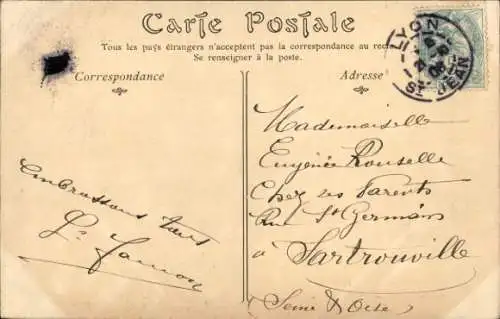 Carte Postale
Tous les pays étrangers n'acceptent pas la correspondance au rec
Se renseigner à la poste.
Correspondance
Adresse
LYON
ST JEAN
Mademoiselle
Eugénie Rouselle
Chez ses Parents
Rue St Germain
à Sartrouville
(Seine & Oise)
Embrassons tous